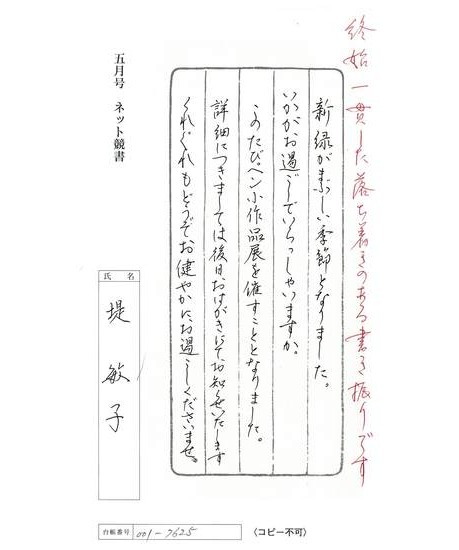 終始一貫した落ち着きのある書き振りです
新緑がまぶしい季節となりました。
いかがお過ごしでいらっしゃいますか。
このたびペン小作品展を催すこととなりました。
詳細につきましては後日おはがきにてお知らせいたします
くれぐれもどうぞお健やかにお過ごしくださいませ。
五月号 ネット競書
氏名
堤敏子
台帳番号 001-7625
〈コピー不可〉